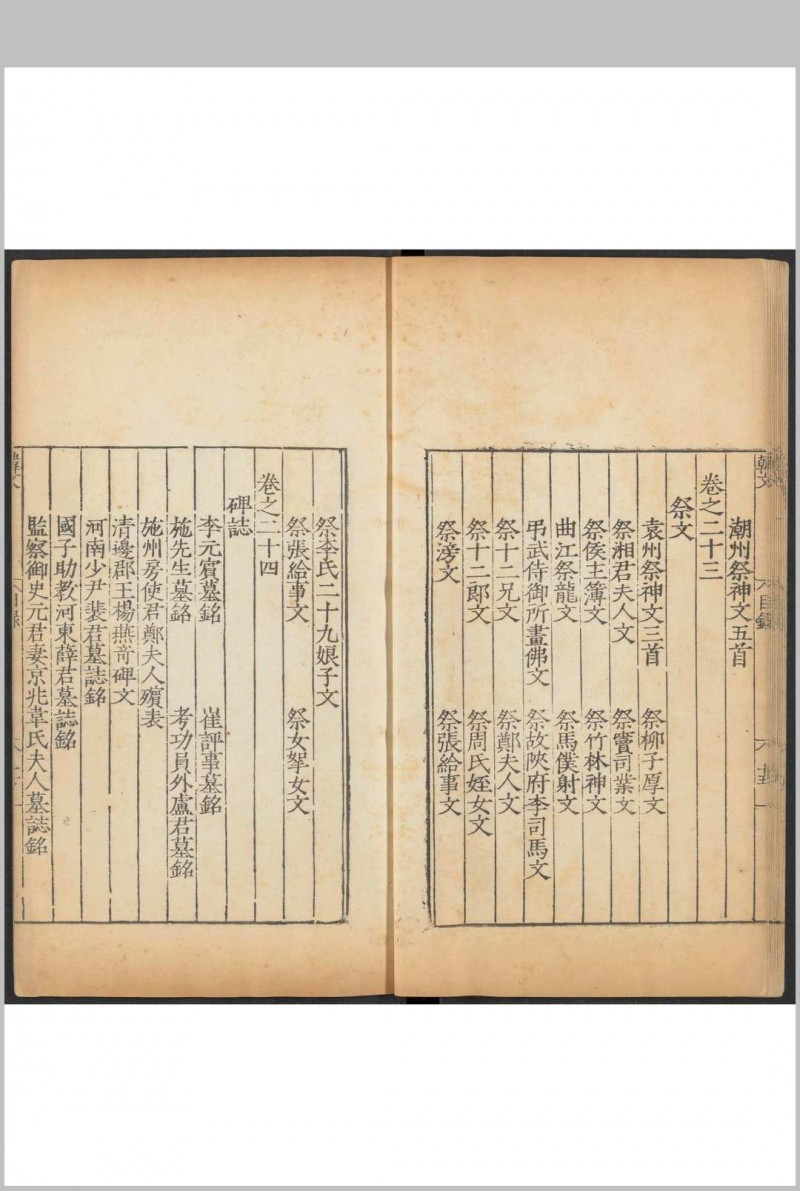 韓文
目錄
潮州祭神文五首
卷之二十三
祭文
袁州祭神文三首 祭柳子厚文
祭湘君夫人文 祭竇司業文
祭侯主簿文 祭竹林神文
曲江祭龍文 祭馬僕射文
弔武侍御所畫佛文 祭故陝府李司馬文
祭十二兄文 祭鄭夫人文
祭十二郎文 祭周氏姪女文
祭滂文 祭張給事文
祭李氏二十九娘子文
祭張給事文 祭女挐女文
卷之二十四
碑誌
李元賓墓銘 崔評事墓銘
施先生墓銘 考功員外盧君墓銘
施州房使君鄭夫人殯表
清邊郡王楊燕奇碑文
河南少尹裴君墓誌銘
國子助教河東薛君墓誌銘
監察御史元君妻京兆韋氏夫人墓誌銘